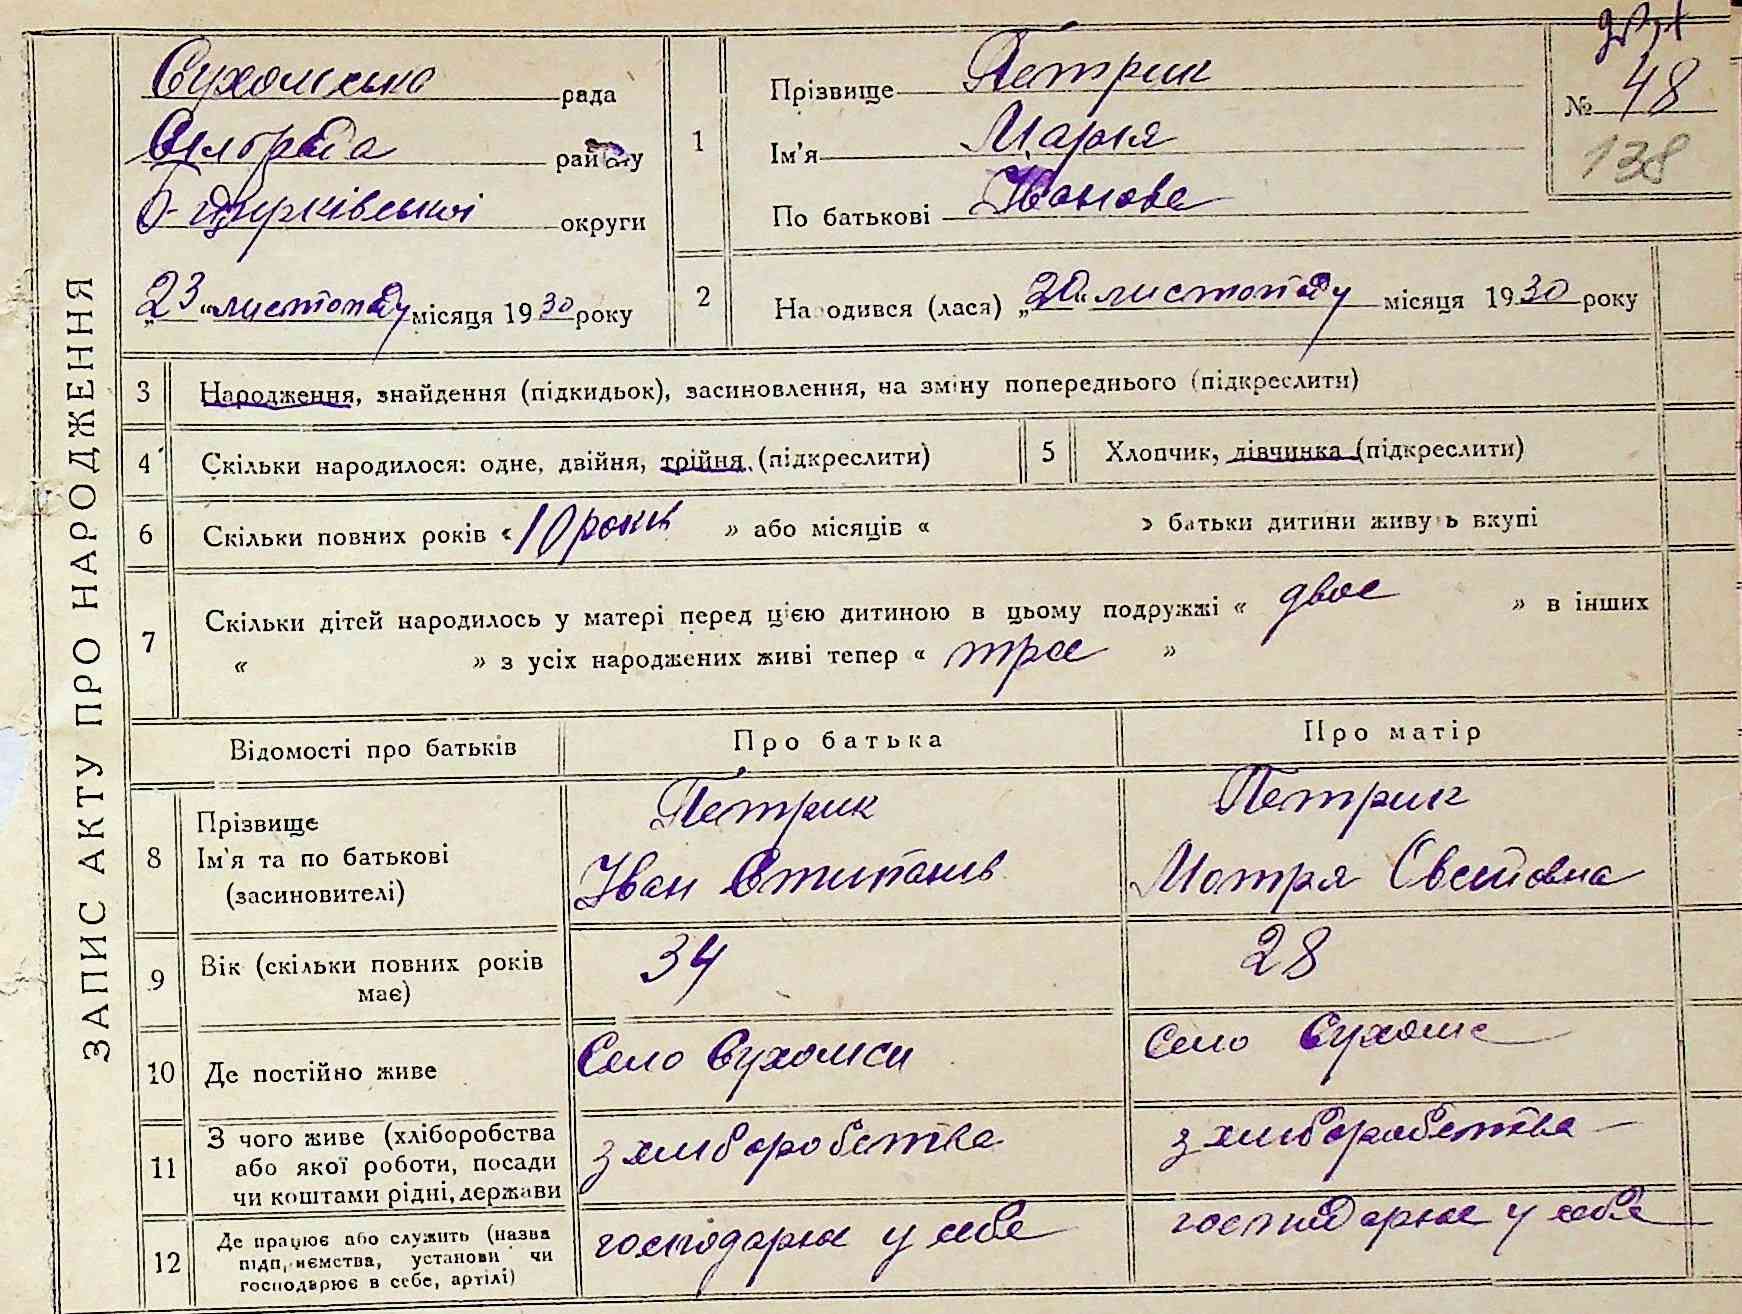 ЗАПИС АКТУ ПРО НАРОДЖЕННЯ
Сухоліська рада
району
Б-Церківської округи
„23“ листопаду місяця 1930 року
1
Прізвище Петрик
Ім'я Марія
По батькові Іванова
№ 48
138
2
Народився (лася) „20“ листопаду місяця 1930 року
3 Народження, знайдення (підкидьок), засиновлення, на зміну попереднього (підкреслити)
4 Скільки народилося: одне, двійня, трійня, (підкреслити)
5 Хлопчик, дівчинка (підкреслити)
6 Скільки повних років « 10 років » або місяців « » батьки дитини живуть вкупі
7 Скільки дітей народилось у матері перед цією дитиною в цьому подружжі « двоє » в інших
« » з усіх народжених живі тепер « троє »
Відомості про батьків Про батька Про матір
8 Прізвище
Ім'я та по батькові
(засиновителі)
Петрик
Іван Степанів
Петрик
Мотря
9 Вік (скільки повних років
має)
34
28
10 Де постійно живе
Село Сухоліси
Село Сухоліс
11 З чого живе (хліборобства
або якої роботи, посади
чи коштами рідні, держави
з хліборобства
з хліборобства
12 Де працює або служить (назва
підприємства, установи чи
господарює в себе, артілі)
господарює у себе
господарює у себе